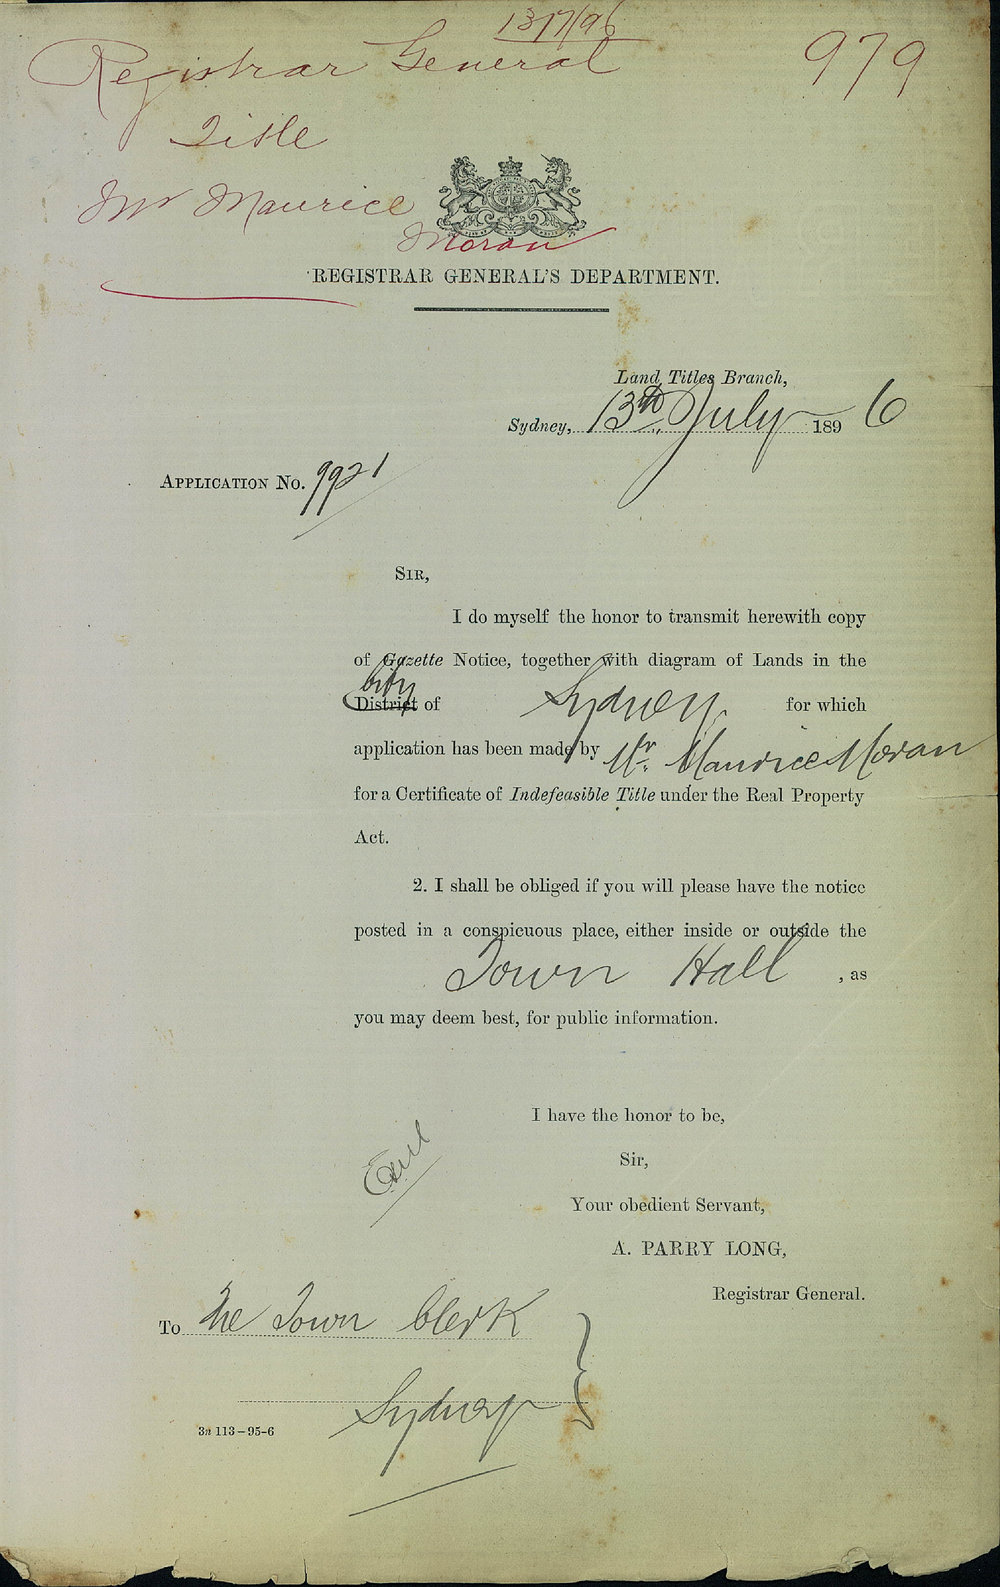 13/7/96
Registrar General
979
Title
Mr Maurice
Moran
REGISTRAR GENERAL'S DEPARTMENT.
Land Titles Branch,
Sydney, 13th July 1896
APPLICATION No. 9921
SIR,
I do myself the honor to transmit herewith copy
of Gazette Notice, together with diagram of Lands in the
City
District of Sydney for which
application has been made by Mr. Maurice Moran
for a Certificate of Indefeasible Title under the Real Property
Act.
2. I shall be obliged if you will please have the notice
posted in a conspicuous place, either inside or outside the
Town Hall, as
you may deem best, for public information.
I have the honor to be,
Sir,
Your obedient Servant,
A. PARRY LONG,
Registrar General.
To The Town Clerk
Sydney
3a 113-95-6